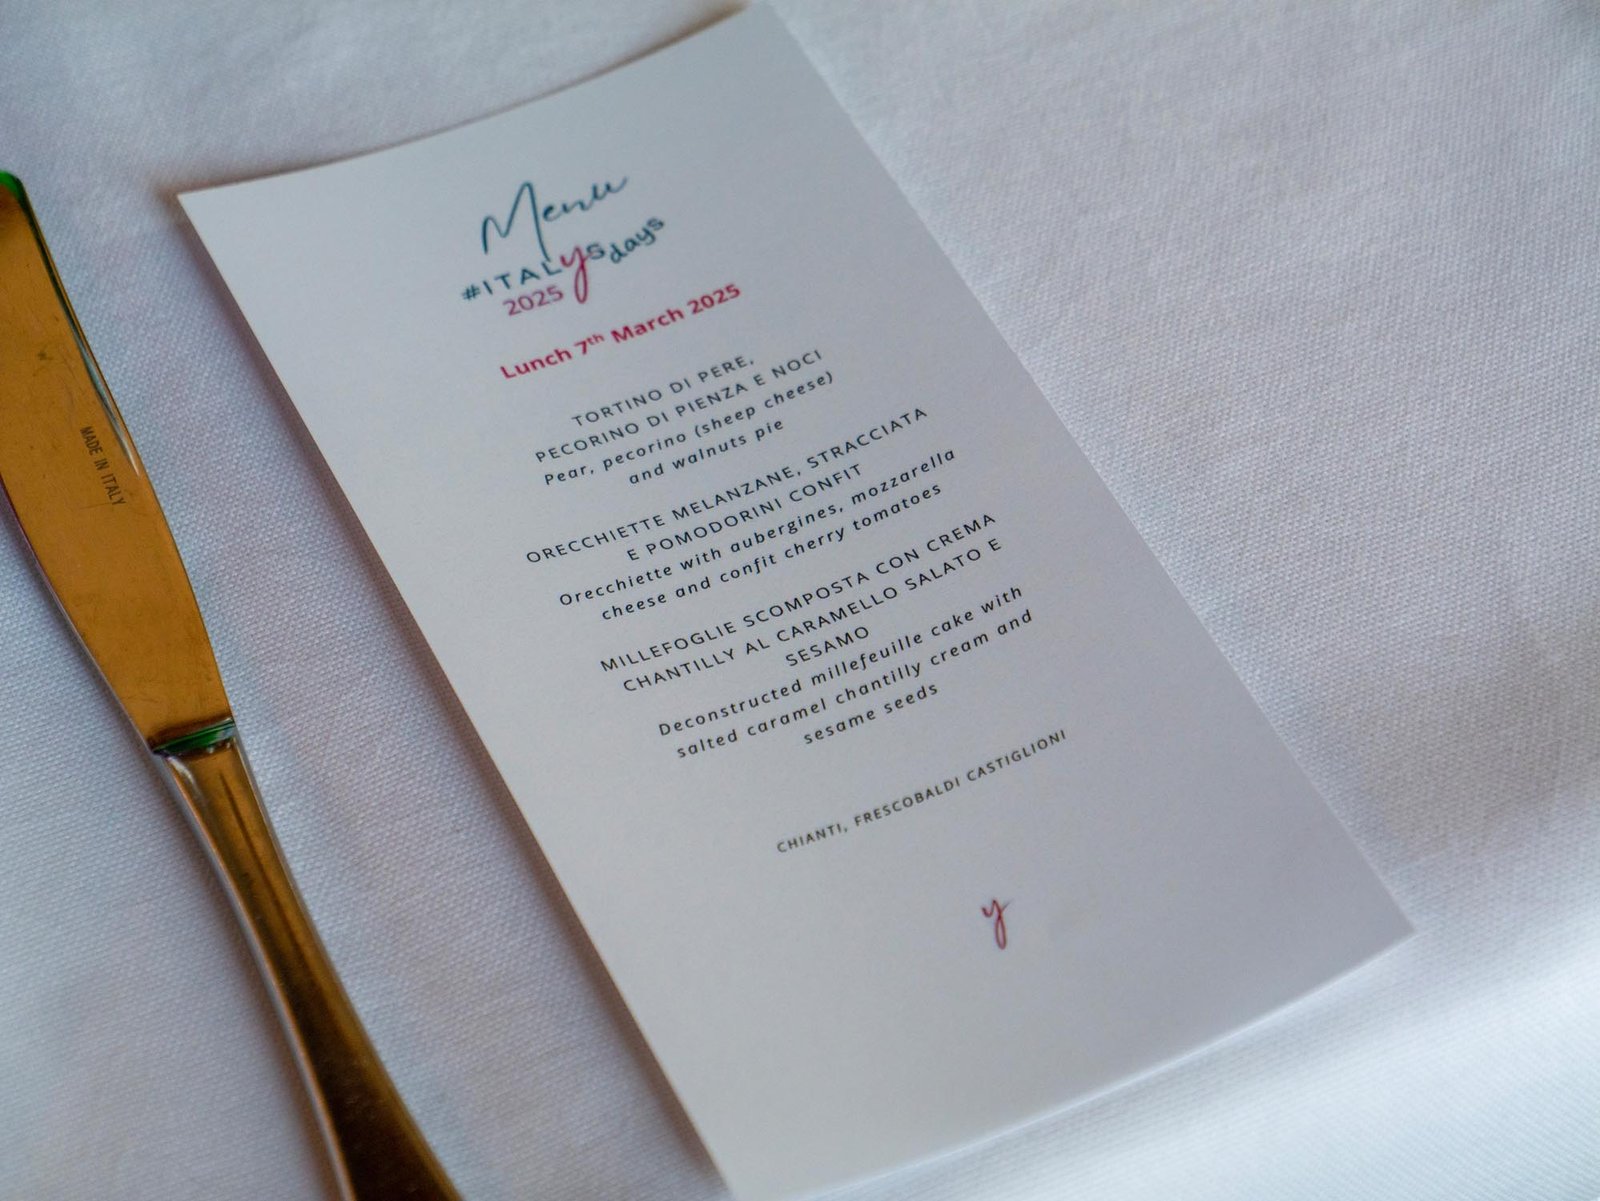 Menu
#ITALYSdays
2025
Lunch 7th March 2025
TORTINO DI PERE,
PECORINO DI PIENZA E NOCI
Pear, pecorino (sheep cheese)
and walnuts pie
ORECCHIETTE MELANZANE, STRACCIATA
E POMODORINI CONFIT
Orecchiette with aubergines, mozzarella
cheese and confit cherry tomatoes
MILLEFOGLIE SCOMPOSTA CON CREMA
CHANTILLY AL CARAMELLO SALATO E
SESAMO
Deconstructed millefeuille cake with
salted caramel chantilly cream and
sesame seeds
CHIANTI, FRESCOBALDI CASTIGLIONI
y
MADE IN ITALY